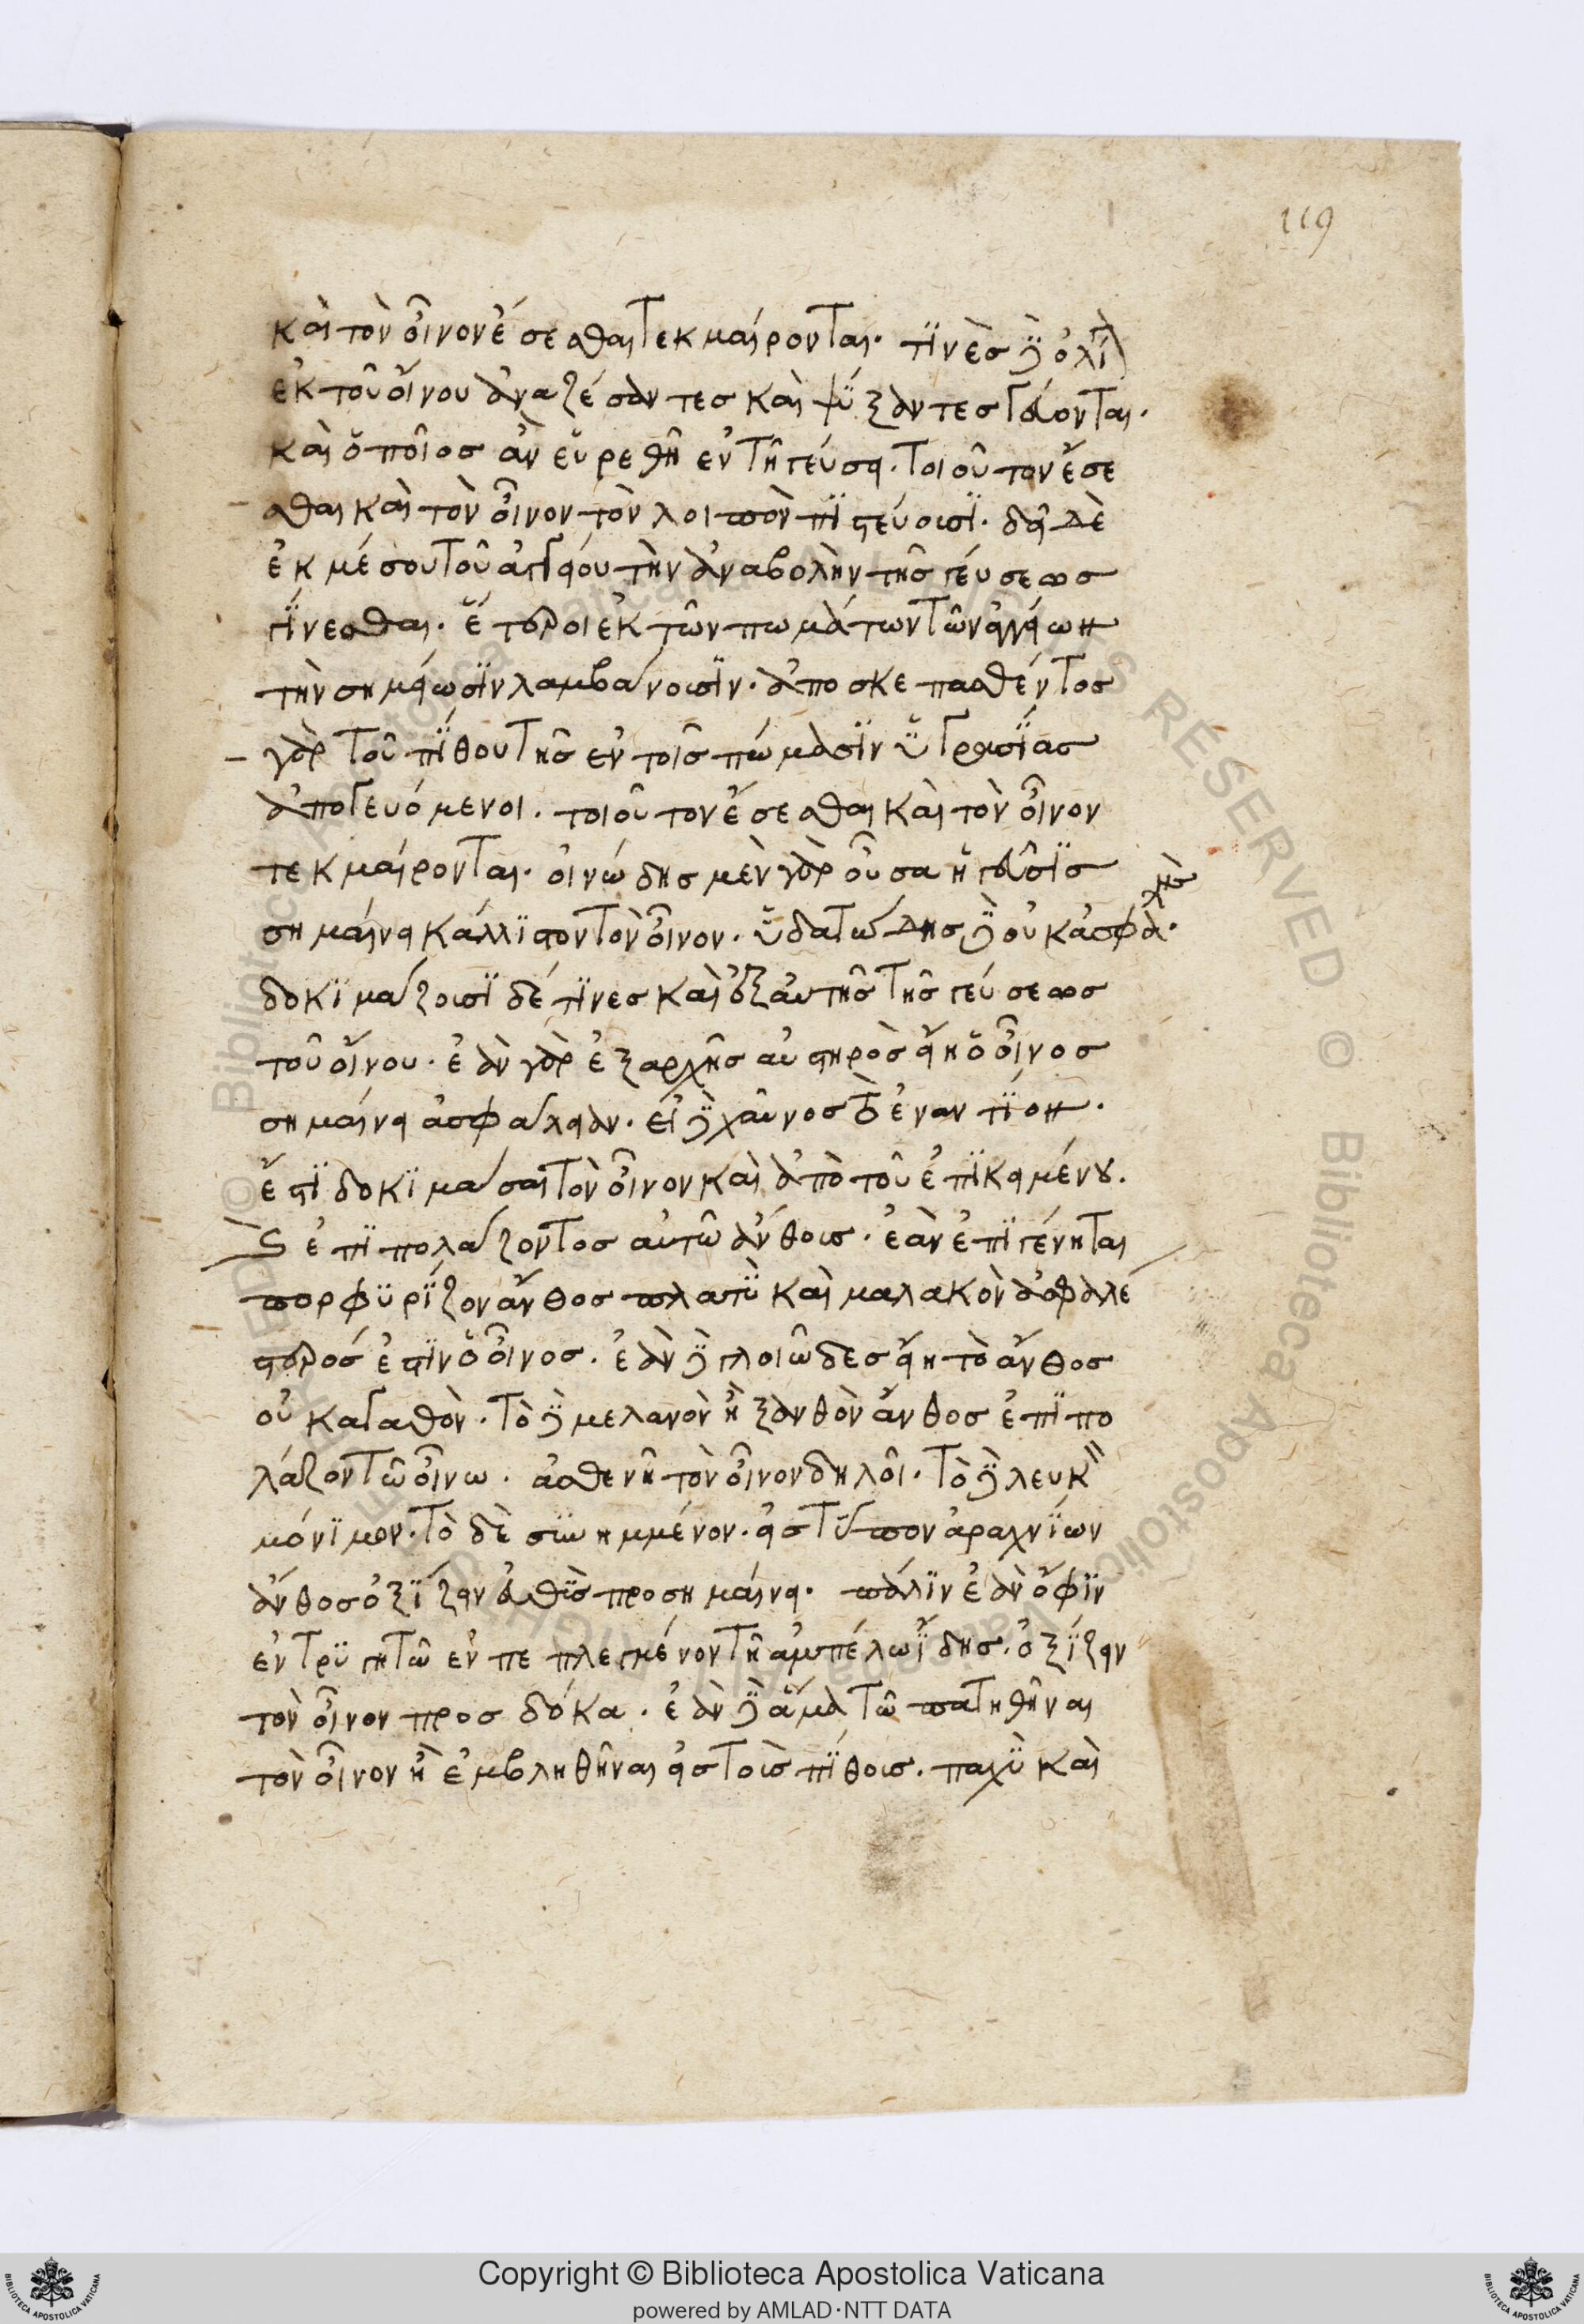 119
καὶ τὸν οἶνον ἔσεσθαι τεκμαίρονται. τινὲς δὲ ὀλίγον
ἐκ τοῦ οἴνου ἀναζέσαντες καὶ ψύξαντες γεύονται.
καὶ ὁποῖος ἂν εὑρεθῆ ἐν τῆ γεύσει. τοιοῦτον ἔσε
σθαι καὶ τὸν οἶνον τὸν λοιπὸν πιστεύουσι. δεῖ δὲ
ἐκ μέσου τοῦ ἀγγείου τὴν ἀναβολὴν τῆς γεύσεως
γίνεσθαι. ἕτεροι ἐκ τῶν πωμάτων τῶν ἀγγείων
τὴν σημείωσιν λαμβάνουσιν. ἀποσκεπασθέντος
γὰρ τοῦ πίθου τῆς ἐν τοῖς πώμασιν ὑγρασίας
ἀπογευόμενοι. τοιοῦτον ἔσεσθαι καὶ τὸν οἶνον
τεκμαίρονται. οἰνώδης μὲν γὰρ οὖσα ἡ γεῦσις
σημαίνει κάλλιστον τὸν οἶνον. ὑδατώδης δὲ οὐκ ἀσφαλῆς.
δοκιμάζουσι δέ τινες καὶ ἐξ αὐτῆς τῆς γεύσεως
τοῦ οἴνου. ἐὰν γὰρ ἐξαρχῆς αὐστηρὸς εἴη ὁ οἶνος
σημαίνει ἀσφάλειαν. εἰ δὲ χαῦνος τὸ ἐναντίον.
ἔστι δοκιμάσαι τὸν οἶνον καὶ ἀπὸ τοῦ ἐπικειμένου.
καὶ ἐπιπολάζοντος αὐτῶ ἄνθους. ἐὰν ἐπιγένηται
πορφυρίζον ἄνθος πλατὺ καὶ μαλακὸν ἀσφαλέ
στερός ἐστιν ὁ οἶνος. ἐὰν δὲ γλοιῶδες εἴη τὸ ἄνθος
οὐκ ἀγαθὸν. τὸ δὲ μελανὸν ἢ ξανθὸν ἄνθος ἐπιπο
λάζον τῶ οἴνω. ἀσθενῆ τὸν οἶνον δηλοῖ. τὸ δὲ λευκὸν
μόνιμον. τὸ δὲ συνημμένον. εἰς τύπον ἀραχνίων
ἄνθος ὀξίζειν εὐθὺς προσημαίνει. πάλιν ἐὰν ὄφιν
ἐν τρυγητῶ ἐνπεπλεγμένον τῆ ἀμπέλω ἴδης. ὀξίζειν
τὸν οἶνον προσδόκα. ἐὰν δὲ ἅμα τῶ πατηθῆναι
τὸν οἶνον ἢ ἐμβληθῆναι εἰς τοὺς πίθους. παχὺ καὶ
Copyright © Biblioteca Apostolica Vaticana
powered by AMLAD·NTT DATA